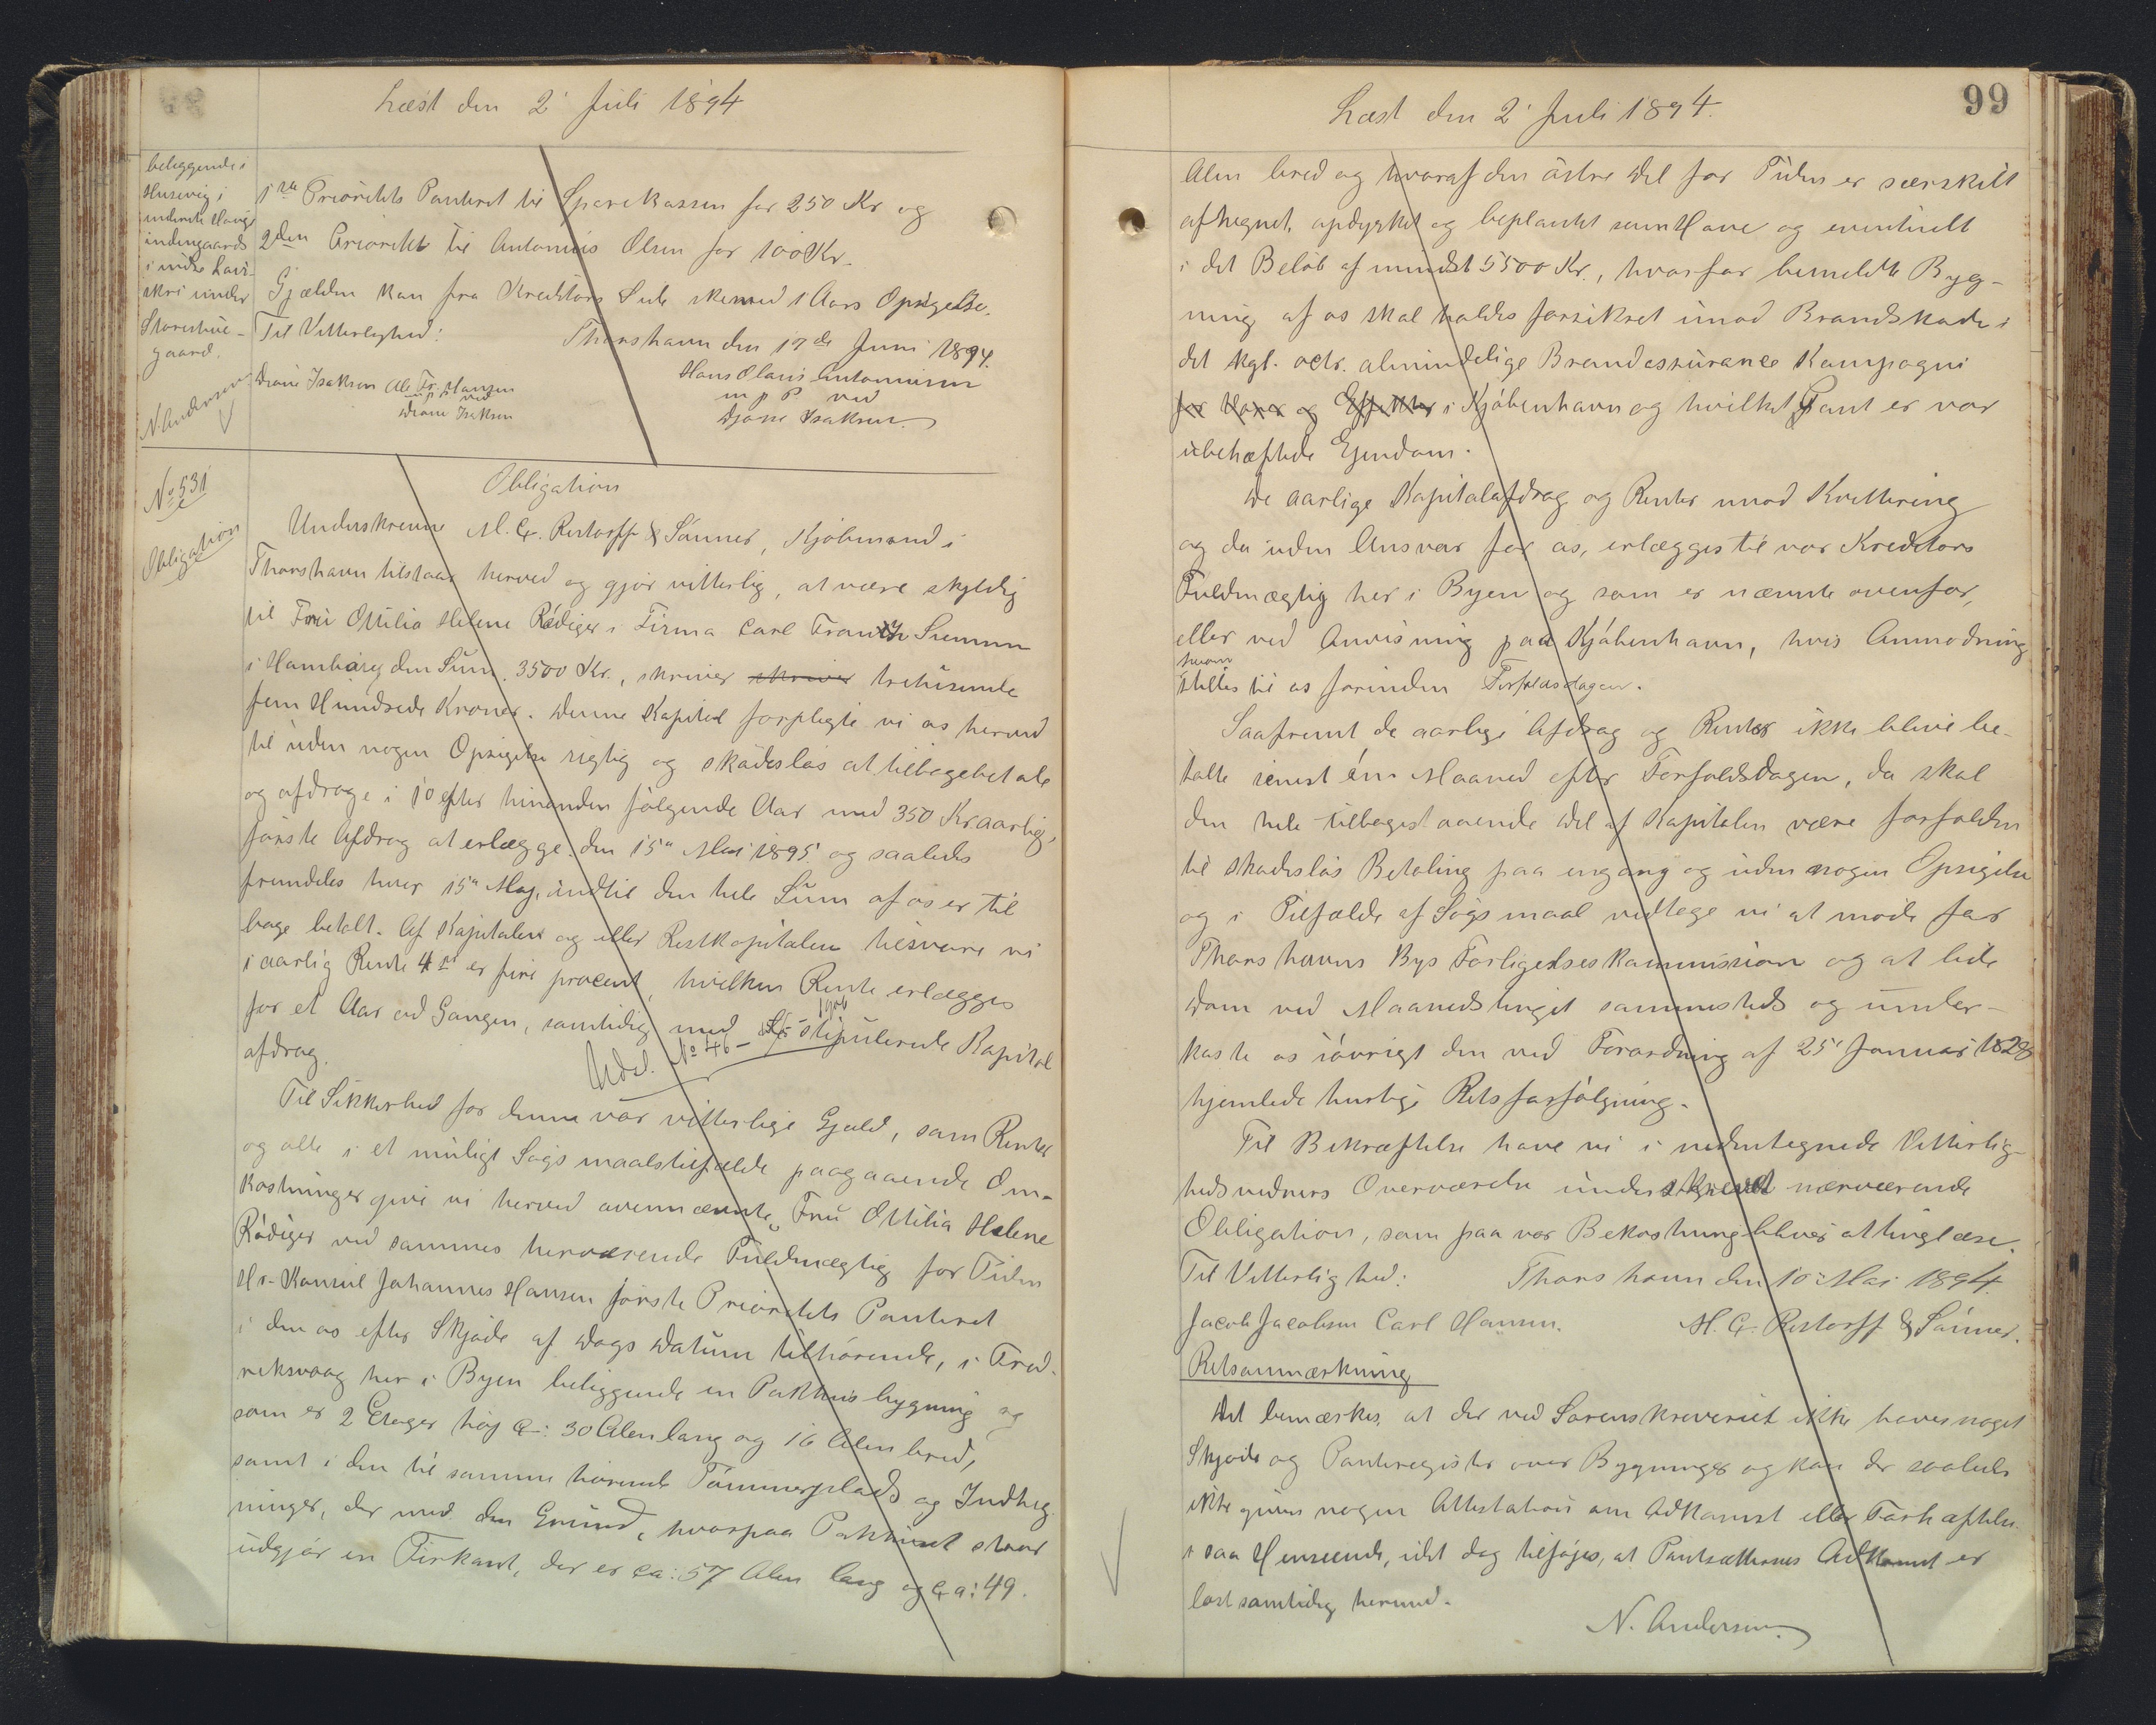 Læst den 2' Juli 1894
beliggende i
Husevig i
underste Haug
indengaards
i niðre
skri under
Storehuse-
gaard.
N. Andersen
1ste Prioritets Panteret til Sparekassen for 250 Kr og
2den Prioritet til Antonius Olsen for 100 Kr.
Gjælden kan fra Kreditors Side skemed 1 Aars Opsigelse.
Til Vitterlighed:
Thorshavn den 17de Juni 1894.
Hans Olaus Antoniusen
m p P ved
Djóni Isaksen
Djóni Isaksen Ole Fr. Hansen
m p P ved
Djóni Isaksen
No 531
Obligation
Obligation
Underskrevne M. C. Restorff & Sønner, Kjøbmænd i
Thorshavn tilstaar herved og gjør vitterlig, at være skyldig
til Frú Ottilia Helene Rödiger i Firma Carl Franch
i Hamborg den Sum. 3500 Kr., skriver skriver tretusinde
fem Hundrede Kroner. Denne Kapital forpligte vi os herved
til uden nogen Opsigelse rigtig og skadesløs at tilbagebetale
og afdrage i 10 efter hinanden følgende Aar med 350 Kr aarlig,
første Afdrag at erlægge den 15' Mai 1895 og saaledes
fremdeles hver 15' Maj, indtil den hele Sum af os er til
bage betalt. Af Kapitalen og eller Restkapitalen tilsvare vi
i aarlig Rente 4 pt er fire procent, hvilken Rente erlægges
for et Aar ad Gangen, samtidig med de stipulerede Kapital
afdrag.
Udsl. No 46 - 1906
Til Sikkerhed for denne vor vitterlige Gjæld, som Renter
og alle i et muligt Søgsmaalstilfælde paagaaende Om-
kostninger give vi herved ovennævnte Fru Ottilia Helene
Rödiger ved sammes herværende Fuldmægtig for Tiden
Hr. Konsul Johannes Hansen første Prioritets Panteret
i den os efter Skjøde af Dags Datum tilhørende, i Fred-
reksvaag her i Byen beliggende en Pakhusbygning og
som er 2 Etager høj ca: 30 Alen lang og 16 Alen bred,
samt i den til samme hørende Tømmerplads og Indheg
ninger, der med den Grund, hvorpaa Pakhuset staar
udgjør en Firkant, der er ca: 57 Alen lang og ca: 49.
Læst den 2' Juli 1894.
99
Alen bred og hvoraf den østre Del for Tiden er særskilt
afhegnet, opdyrket og beplantet som Have og eventuelt
i det Beløb af mindst 5500 Kr., hvorfor bemeldte Byg-
ning af os skal holdes forsikret imod Brandskade i
det kgl. octr. almindelige Brandassurance Kompagni
for Varer og Effekter i Kjøbenhavn og hvilket Pant er vor
ubehæftede Ejendom.
De aarlige Kapitalafdrag og Renter imod Kvittering
og da uden Ansvar for os, erlægges til vor Kreditors
Fuldmægtig her i Byen og som er nævnte ovenfor,
eller ved Anvisning paa Kjøbenhavn, hvis Anmodning
herom
stilles til os forinden Forfaldsdagen.
Saafremt de aarlige Afdrag og Renter ikke blive be-
talte senest én Maaned efter Forfaldsdagen, da skal
den hele tilbagestaaende Del af Kapitalen være forfalden
til skadesløs Betaling paa engang og uden nogen Opsigelse
og i Tilfælde af Søgsmaal vedtage vi at møde for
Thorshavns Bys Forligelseskommission og at lide
Dom ved Maanedstinget sammesteds og under-
kaste os iøvrigt den ved Forordning af 25' Januar 1828
hjemlede hurtige Retsforfølgning.
Til Bekræftelse have vi i nedentegnede Vitterlig-
hedsvidners Overværelse underskrevet nærværende
Obligation, som paa vor Bekostning bliver at tinglæse.
Til Vitterlighed: Thorshavn den 10 Mai 1894.
Jacob Jacobsen Carl Hansen. M. C. Restorff & Sønner.
Retsanmærkning
Det bemærkes, at der ved Sorenskriveriet ikke haves noget
Skjøde og Panteregister over Bygninger og kan der saaledes
ikke gives nogen Attestation om Adkomst eller Forhæftelse
i saa Henseende, idet dog tilføjes, at Pantsætternes Adkomst er
læst samtidig hermed.
N. Andersen